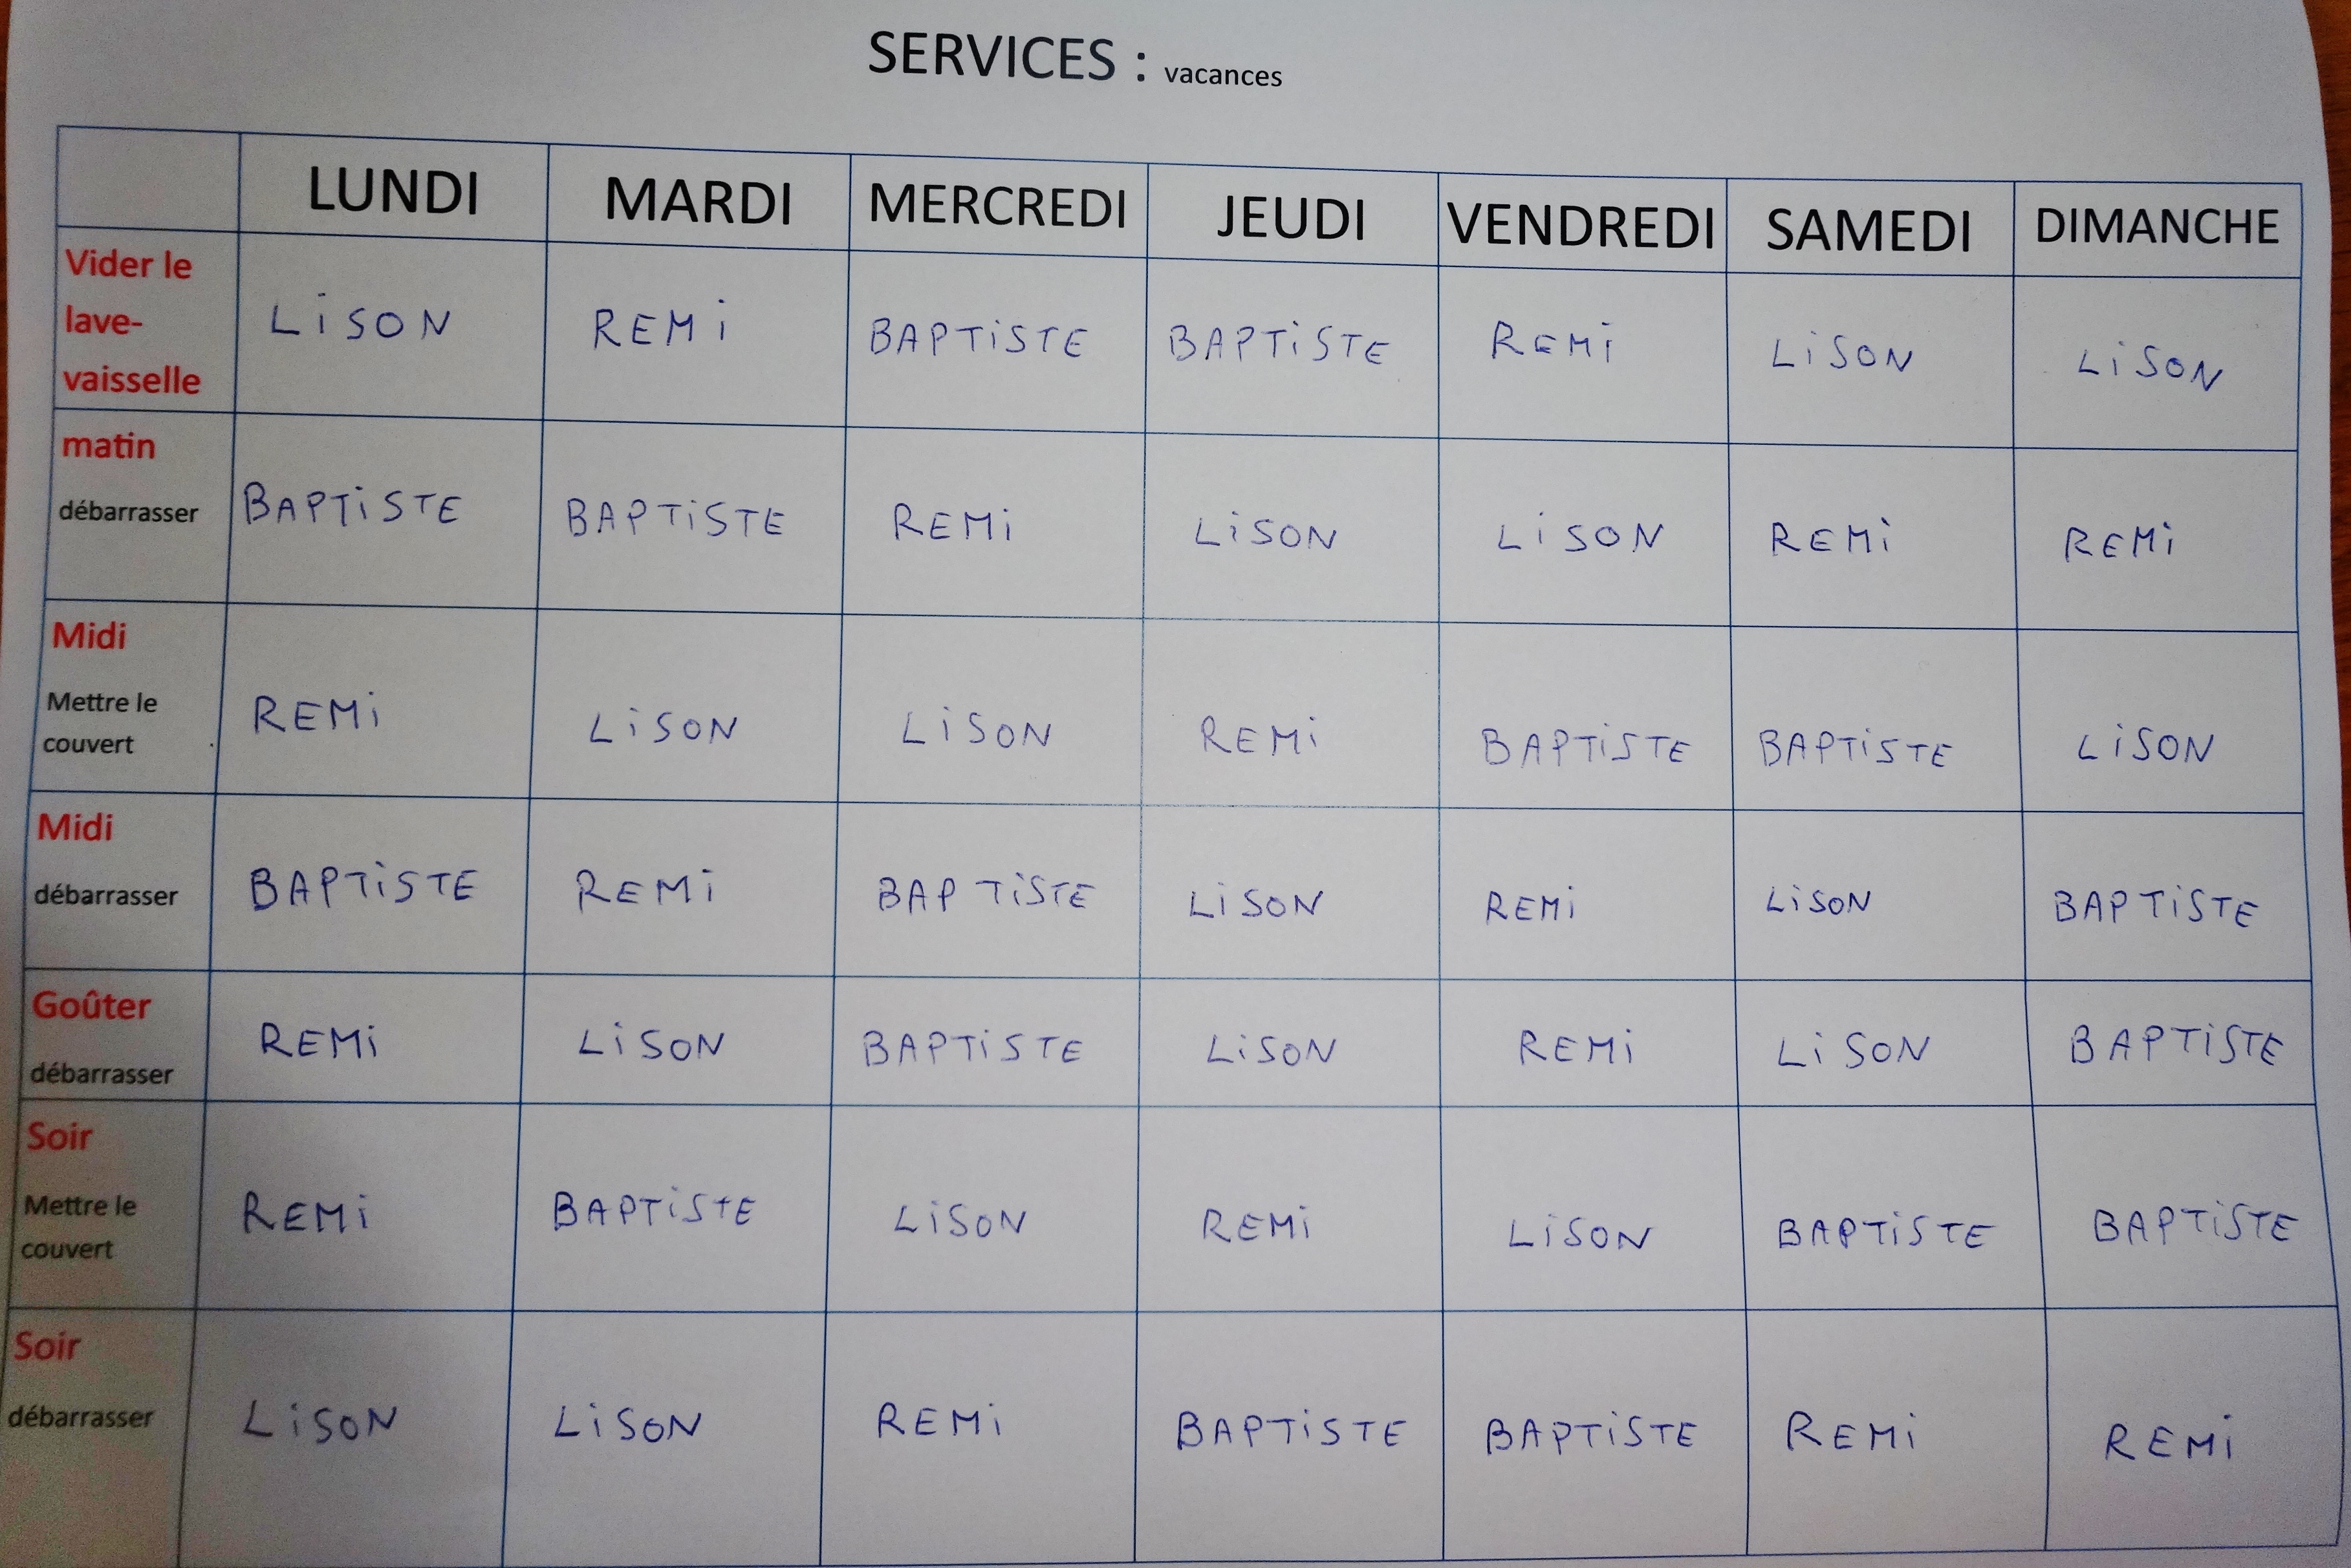 SERVICES : vacances
LUNDI MARDI MERCREDI JEUDI VENDREDI SAMEDI DIMANCHE
Vider le
lave-
vaisselle
LiSON REMi BAPTiSTE BAPTiSTE REMi LiSON LiSON
matin
débarrasser
BAPTiSTE BAPTiSTE REMi LiSON LiSON REMi REMi
Midi
Mettre le
couvert
REMi LiSON LiSON REMi BAPTiSTE BAPTiSTE LiSON
Midi
débarrasser
BAPTiSTE REMi BAPTiSTE LiSON REMi LiSON BAPTiSTE
Goûter
débarrasser
REMi LiSON BAPTiSTE LiSON REMi LiSON BAPTiSTE
Soir
Mettre le
couvert
REMi BAPTiSTE LiSON REMi LiSON BAPTiSTE BAPTiSTE
Soir
débarrasser
LiSON LiSON REMi BAPTiSTE BAPTiSTE REMi REMi